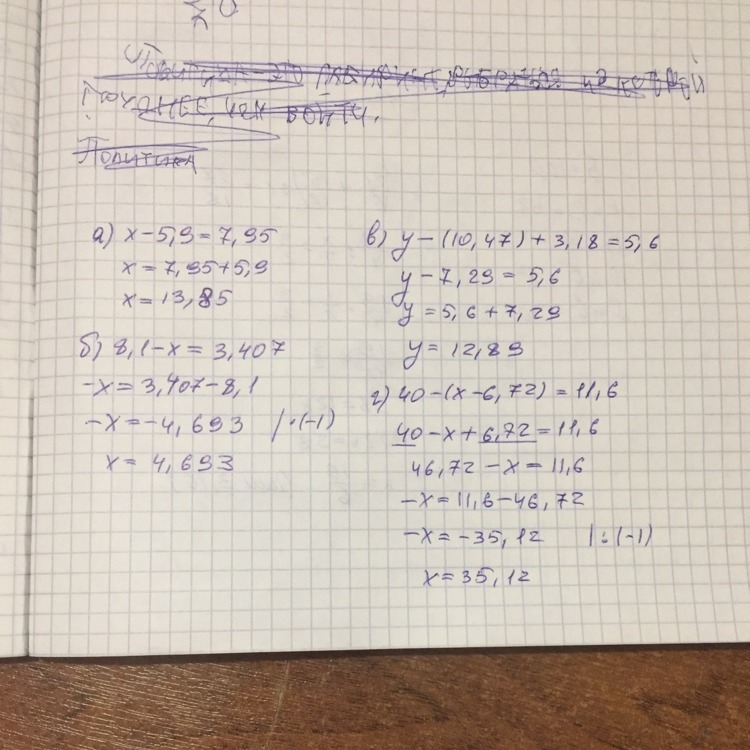 а) x-5,9=7,95
x=7,95+5,9
x=13,85
б) 8,1-x=3,407
-x=3,407-8,1
-x=-4,693 |:(-1)
x=4,693
в) y-(10,47)+3,18=5,6
y-7,29=5,6
y=5,6+7,29
y=12,89
г) 40-(x-6,72)=11,6
40-x+6,72=11,6
46,72-x=11,6
-x=11,6-46,72
-x=-35,12 |:(-1)
x=35,12